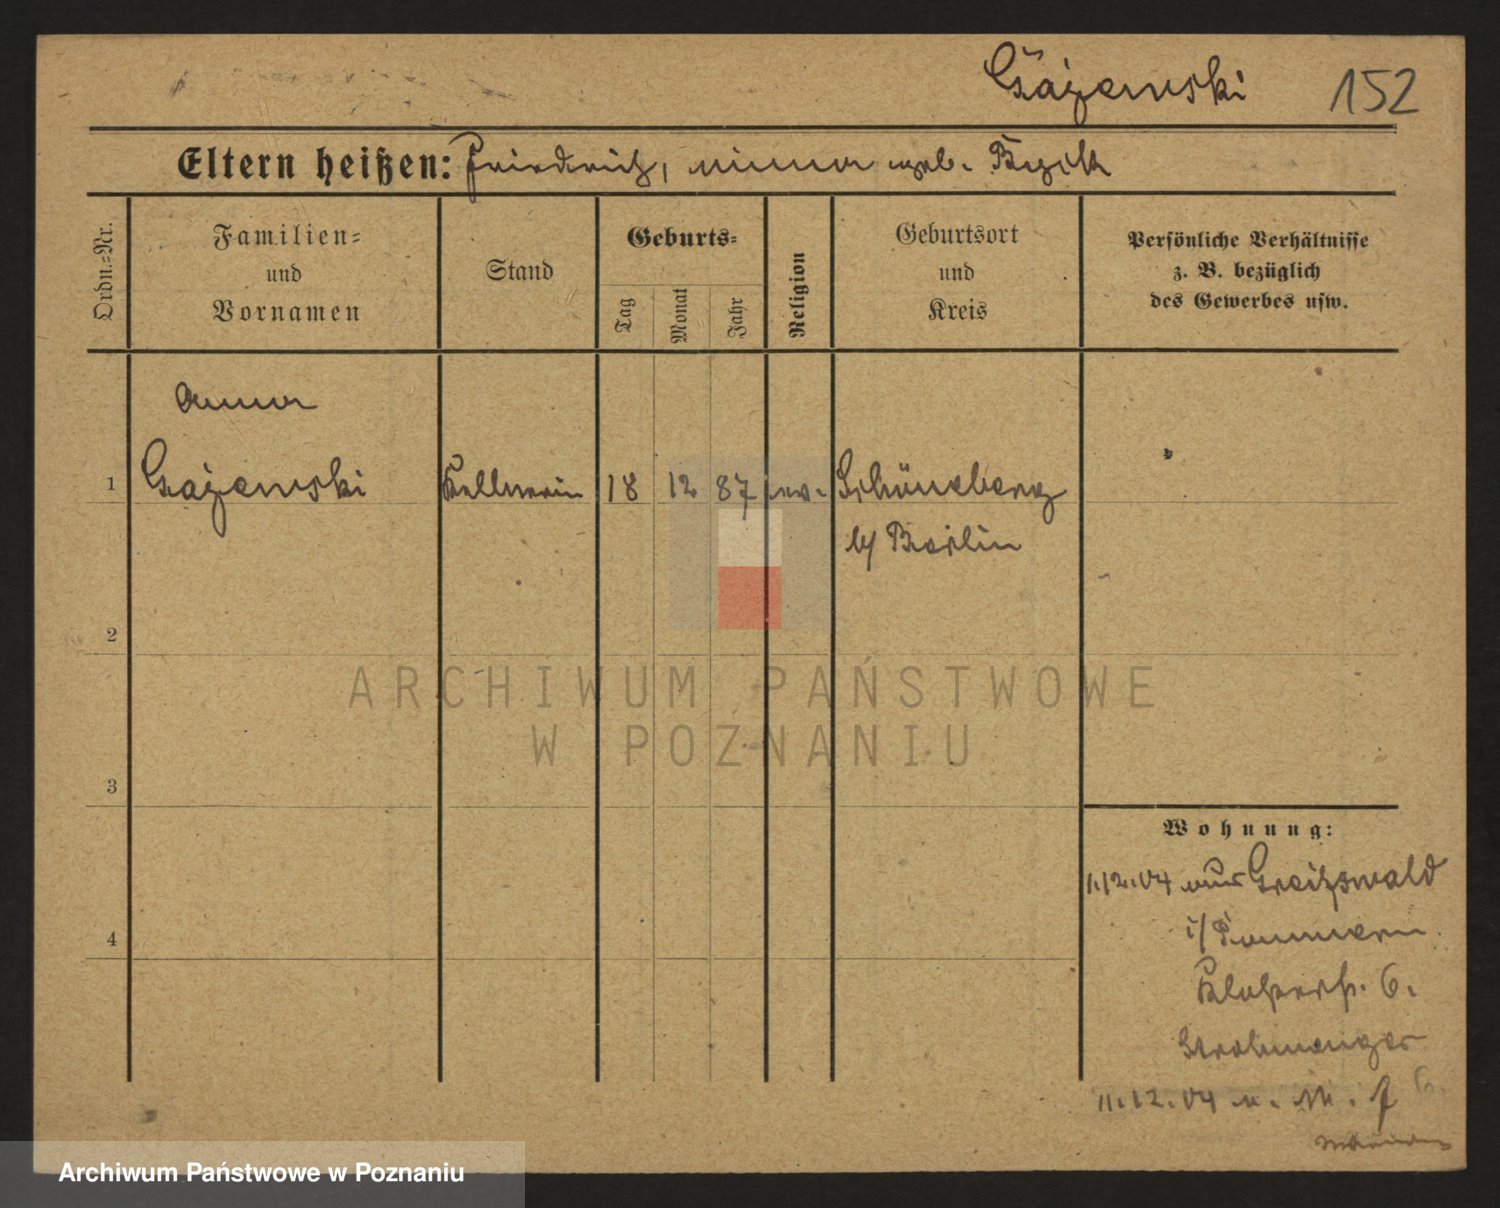 Gażewski 152
Eltern heißen: Friedrich, Minna geb.
Ordn.-Nr.
Familien-
und
Vornamen
Stand
Geburts-
Tag
Monat
Jahr
Religion
Geburtsort
und
Kreis
Persönliche Verhältnisse
z. B. bezüglich
des Gewerbes usw.
Anna
1 Gażewski Kellnerin 18 12 87 ev. Schöneberg
b/ Berlin
2
3
4
Wohnung:
1.12.04 aus Greifswald
i/ Pommern
6.
11.12.04 n.
ARCHIWUM PAŃSTWOWE
W POZNANIU
Archiwum Państwowe w Poznaniu